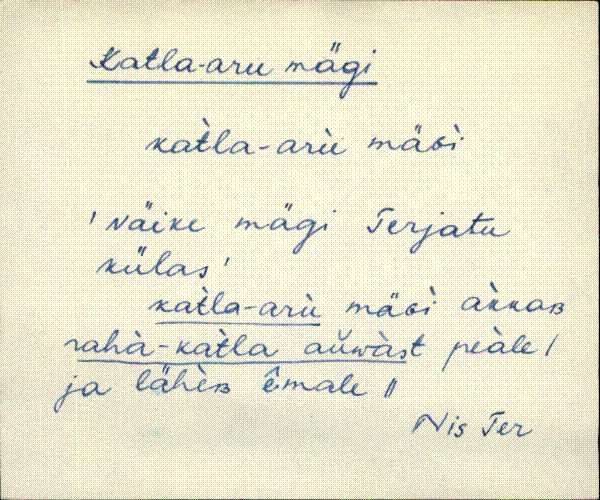 Katla-aru mägi
katl̀a-arù mäɢì
'Näike mägi Terjatu
külas'
katl̀a-arù mäɢì àkkaʙ
rahà-katl̀a aŭwàst peàle /
ja lähèʙ êmale //
Nis Ter